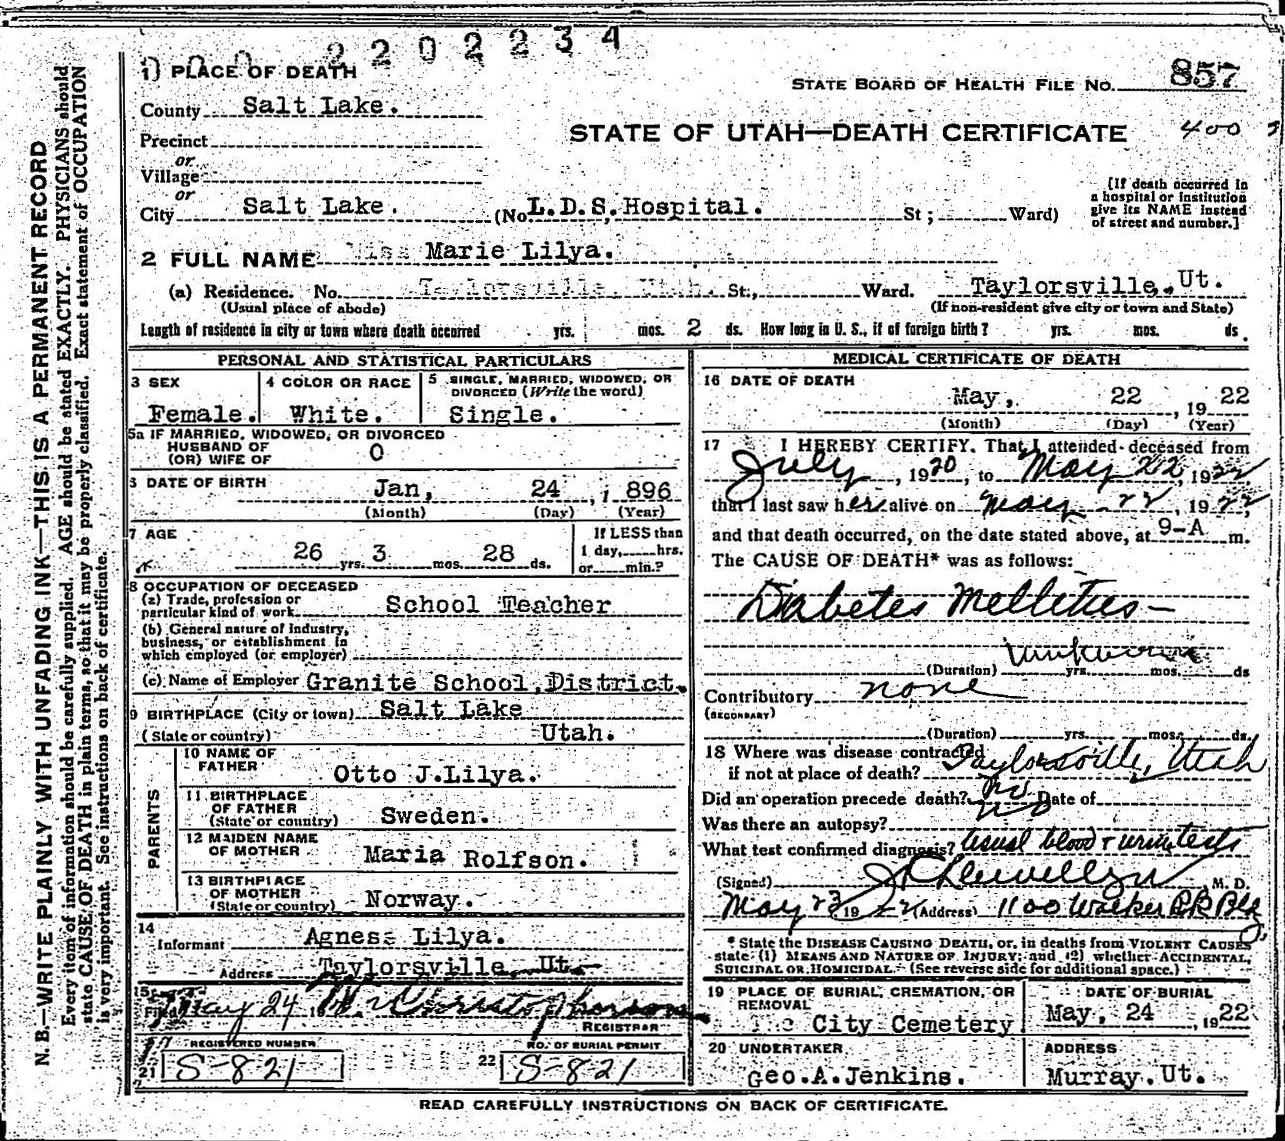 2202234
1) PLACE OF DEATH
STATE BOARD OF HEALTH FILE NO. 857
County Salt Lake.
STATE OF UTAH—DEATH CERTIFICATE
400
Precinct
or
Village
or
City Salt Lake. (No. L.D.S. Hospital. St; Ward)
(If death occurred in
a hospital or institution
give its NAME instead
of street and number.]
2 FULL NAME Miss Marie Lilya.
(a) Residence. No. Taylorsville, Utah. St., Ward. Taylorsville, Ut.
(Usual place of abode) (If non-resident give city or town and State)
Length of residence in city or town where death occurred yrs. mos. 2 ds. How long in U. S., if of foreign birth? yrs. mos. ds.
PERSONAL AND STATISTICAL PARTICULARS
3 SEX 4 COLOR OR RACE 5 SINGLE, MARRIED, WIDOWED, OR
DIVORCED (Write the word)
Female. White. Single.
5a IF MARRIED, WIDOWED, OR DIVORCED
HUSBAND OF
(OR) WIFE OF O
6 DATE OF BIRTH Jan, 24 , 1896
(Month) (Day) (Year)
7 AGE If LESS than
26 yrs. 3 mos. 28 ds. 1 day, hrs.
or min.?
8 OCCUPATION OF DECEASED
(a) Trade, profession or
particular kind of work School Teacher
(b) General nature of industry,
business, or establishment in
which employed (or employer)
(c) Name of Employer Granite School District.
9 BIRTHPLACE (City or town) Salt Lake
(State or country) Utah.
PARENTS
10 NAME OF
FATHER Otto J.Lilya.
11 BIRTHPLACE
OF FATHER
(State or country) Sweden.
12 MAIDEN NAME
OF MOTHER Maria Rolfson.
13 BIRTHPLACE
OF MOTHER
(State or country) Norway.
14
Informant Agness Lilya.
Address Taylorsville, Ut.
15
Filed May 24 19 Christopherson
REGISTRAR
REGISTERED NUMBER
21 S-821
NO. OF BURIAL PERMIT
22 S-821
MEDICAL CERTIFICATE OF DEATH
16 DATE OF DEATH
May, 22 , 19 22
(Month) (Day) (Year)
17 I HEREBY CERTIFY, That I attended deceased from
July , 1920, to May 22, 1922
that I last saw her alive on May 22, 1922
and that death occurred, on the date stated above, at 9-A m.
The CAUSE OF DEATH* was as follows:
Diabetes Mellitus—
unknown
(Duration) yrs. mos. ds
Contributory none
(SECONDARY)
(Duration) yrs. mos. ds.
18 Where was disease contracted
if not at place of death? Taylorsville, Utah
Did an operation precede death? no Date of
Was there an autopsy? no
What test confirmed diagnosis? Usual blood + urine tests
(Signed) Llewellyn M. D.
May 23 1922 (Address) 1100 Walker Bk Blg.
* State the DISEASE CAUSING DEATH, or, in deaths from VIOLENT CAUSES
state (1) MEANS AND NATURE OF INJURY; and (2) whether ACCIDENTAL,
SUICIDAL OR HOMICIDAL. (See reverse side for additional space.)
19 PLACE OF BURIAL, CREMATION, OR
REMOVAL
City Cemetery
DATE OF BURIAL
May, 24 , 19 22
20 UNDERTAKER
Geo.A.Jenkins.
ADDRESS
Murray, Ut.
READ CAREFULLY INSTRUCTIONS ON BACK OF CERTIFICATE.
N. B.—WRITE PLAINLY WITH UNFADING INK—THIS IS A PERMANENT RECORD
Every item of information should be carefully supplied. AGE should be stated EXACTLY. PHYSICIANS should
state CAUSE OF DEATH in plain terms, so that it may be properly classified. Exact statement of OCCUPATION
is very important. See instructions on back of certificate.